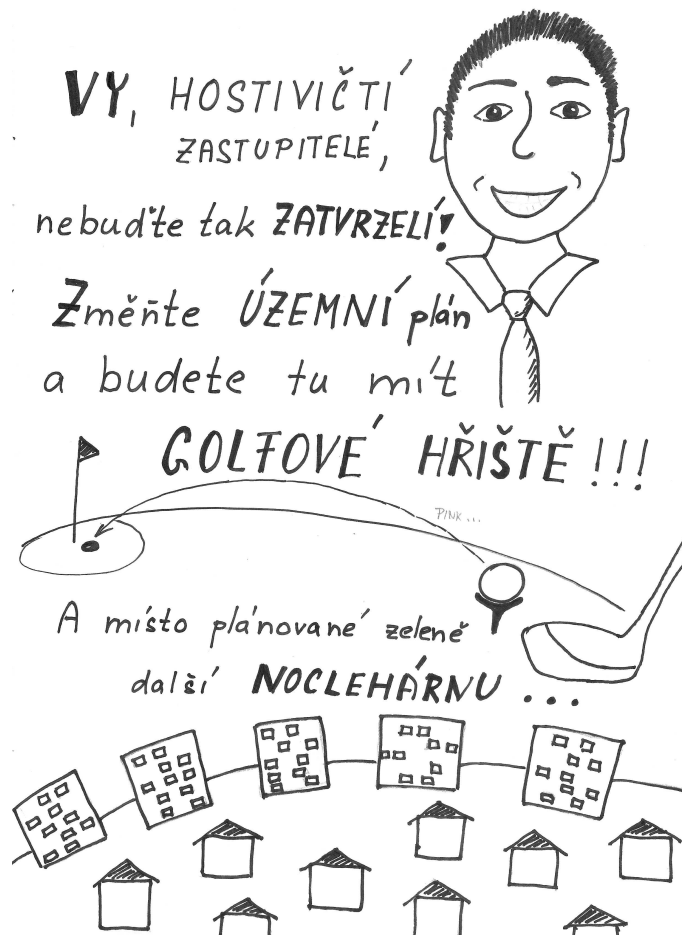 VY, HOSTIVIČTÍ
ZASTUPITELÉ,
nebuďte tak ZATVRZELÍ!
Změňte ÚZEMNÍ plán
a budete tu mít
GOLFOVÉ HŘIŠTĚ!!!
PINK...
A místo plánované zeleně
další NOCLEHÁRNU...